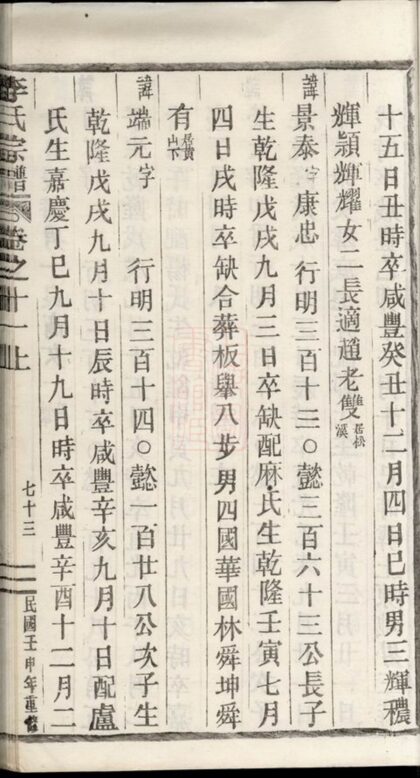 十五日丑時卒咸豐癸丑十二月四日巳時男三輝穠
輝頴輝耀女二長適趙老雙住居松溪
諱景泰字康忠 行明三百十三○懿三百六十三公長子
生乾隆戊戌九月三日卒缺配麻氏生乾隆壬寅七月
四日戌時卒缺合葬板舉八步男四國華國林舜坤舜
有居黃山下
諱端元字 行明三百十四○懿一百廿八公次子生
乾隆戊戌九月十日辰時卒咸豐辛亥九月十日配盧
氏生嘉慶丁巳九月十九日時卒咸豐辛酉十二月二
李氏宗譜 卷之十一上 七十三 民國壬申年重修